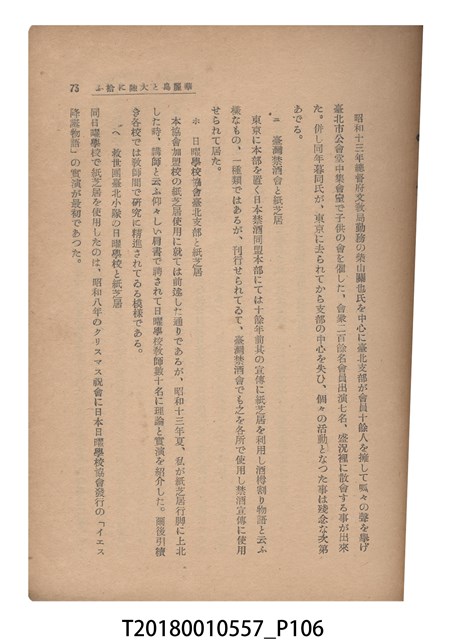 華麗島と大陸に拾ふ 73
昭和十三年總督府文教局勤務の榮山關也氏を中心に臺北支部が會員十餘人を擁して呱々の聲を擧げ
臺北市公會堂中集會室で子供の會を催した、會衆二百餘名會員出演七名、盛況裡に散會する事が出來
た。併し同年暮同氏が、東京に去られてから支部の中心を失ひ、個々の活動となつた事は殘念な次第
あでる。
ニ 臺灣禁酒會と紙芝居
東京に本部を置く日本禁酒同盟本部にては十餘年前其の宣傳に紙芝居を利用し酒樽割り物語と云ふ
樣なもの、一種類ではあるが、刊行せられてゐて、臺灣禁酒會でも之を各所で使用し禁酒宣傳に使用
せられて居た。
ホ 日曜學校協會臺北支部と紙芝居
本協會加盟校の紙芝居使用に就ては前述した通りであるが、昭和十三年夏、私が紙芝居行脚に上北
した時、講師と云ふ仰々しい肩書で誘されて日曜學校教師數十名に理論と實演を紹介した。爾後引續
き各校では教師間で研究に精進されてゐる模樣である。
ヘ 救世團臺北小隊の日曜學校と紙芝居
同日曜學校で紙芝居を使用したのは、昭和八年のクリスマス祝會に日本日曜學校協會發行の「イエス
降誕物語」の實演が最初であつた。
T20180010557_P106